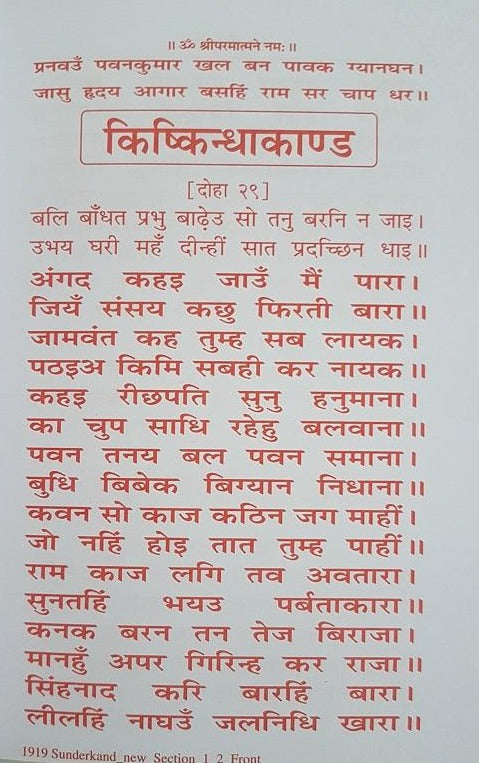 ॥ ॐ श्रीपरमात्मने नमः॥
प्रनवउँ पवनकुमार खल बन पावक ग्यानघन।
जासु हृदय आगार बसहिं राम सर चाप धर॥
किष्किन्धाकाण्ड
[दोहा २९]
बलि बाँधत प्रभु बाढ़ेउ सो तनु बरनि न जाइ।
उभय घरी महँ दीन्हीं सात प्रदच्छिन धाइ॥
अंगद कहइ जाउँ मैं पारा।
जियँ संसय कछु फिरती बारा॥
जामवंत कह तुम्ह सब लायक।
पठइअ किमि सबही कर नायक॥
कहइ रीछपति सुनु हनुमाना।
का चुप साधि रहेहु बलवाना॥
पवन तनय बल पवन समाना।
बुधि बिबेक बिग्यान निधाना॥
कवन सो काज कठिन जग माहीं।
जो नहिं होइ तात तुम्ह पाहीं॥
राम काज लगि तव अवतारा।
सुनतहिं भयउ पर्बताकारा॥
कनक बरन तन तेज बिराजा।
मानहुँ अपर गिरिन्ह कर राजा॥
सिंहनाद करि बारहिं बारा।
लीलहिं नाघउँ जलनिधि खारा॥
1919 Sunderkand_new_Section_1_2_Front